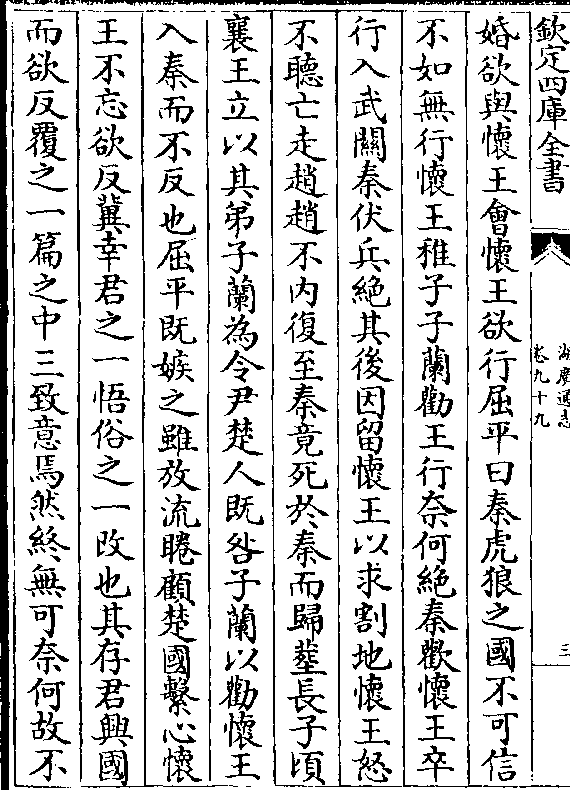 欽定四庫全書
湖廣通志
卷九十九
三
婚欲與懷王會懷王欲行屈平曰秦虎狼之國不可信
不如無行懷王稚子子蘭勸王行奈何絶秦歡懷王卒
行入武關秦伏兵絶其後因留懷王以求割地懷王怒
不聽亡走趙趙不内復至秦竟死於秦而歸塟長子頃
襄王立以其弟子蘭為令尹楚人既咎子蘭以勸懷王
入秦而不反也屈平既嫉之雖放流睠顧楚國繫心懷
王不忘欲反冀幸君之一悟俗之一改也其存君興國
而欲反覆之一篇之中三致意焉然終無可奈何故不